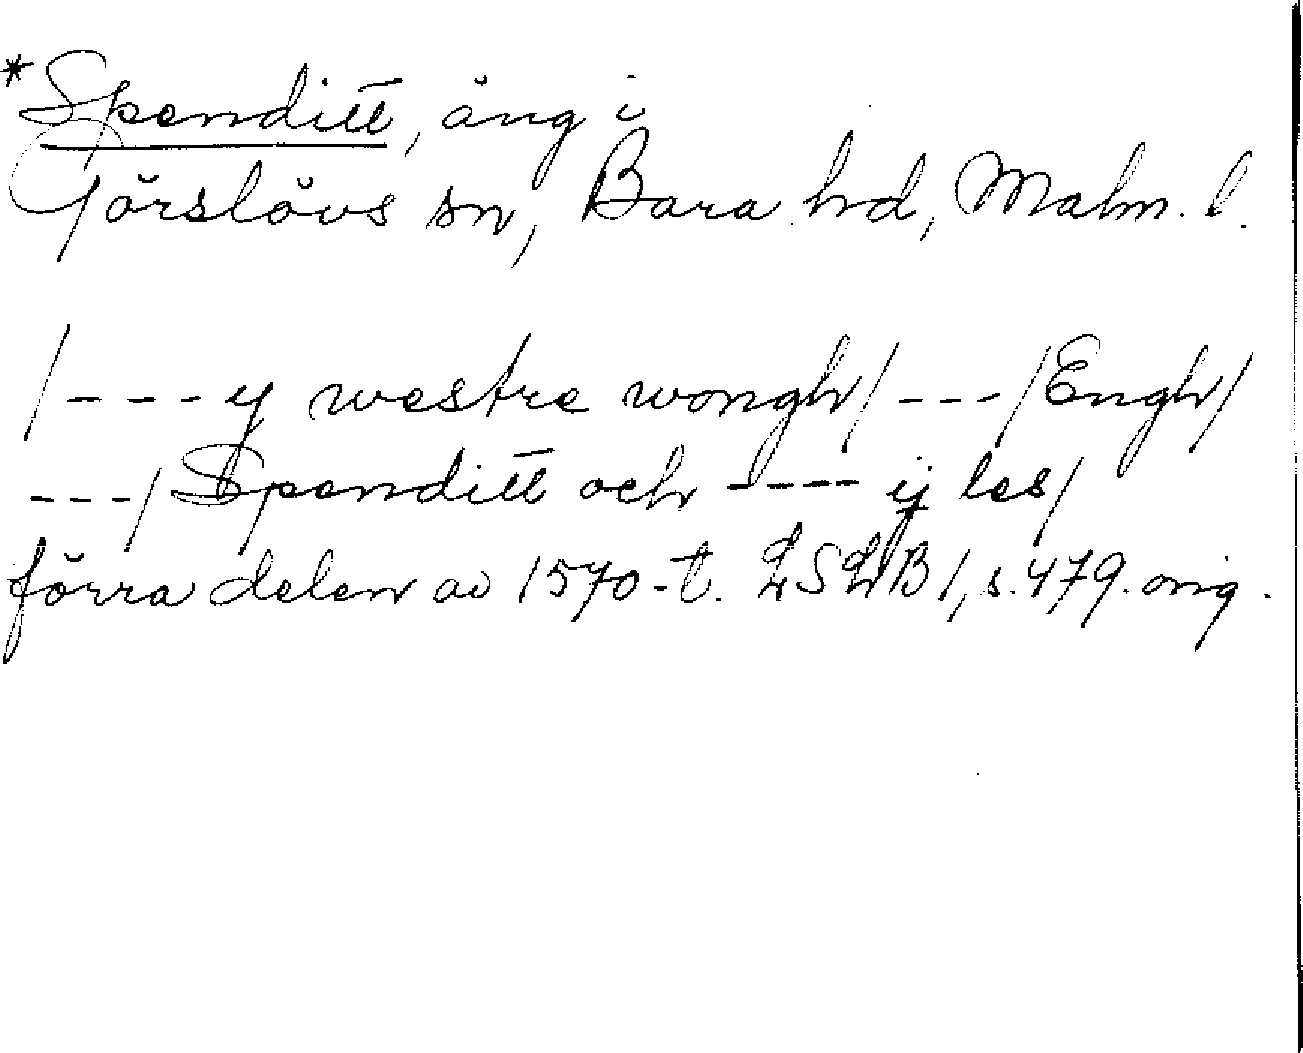 *Spenditt, äng i
Görslövs sn, Bara hd, Malm. l.
/---y westre wongh/---/Engh/
---/Spenditt och ---- ij les/
förra delen av 1570-t. LSLB 1, s. 479. orig.